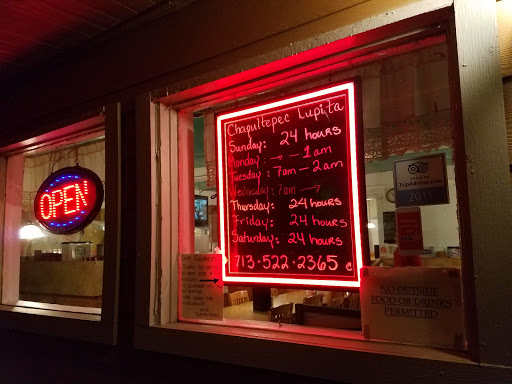 Chapultepec Lupita
Sunday: 24 hours
Monday: → – 1am
Tuesday: 7am – 2am
Wednesday: 7am →
Thursday: 24 hours
Friday: 24 hours
Saturday: 24 hours
713·522·2365
OPEN
tripadvisor
2011
NO OUTSIDE
FOOD OR DRINKS
PERMITTED